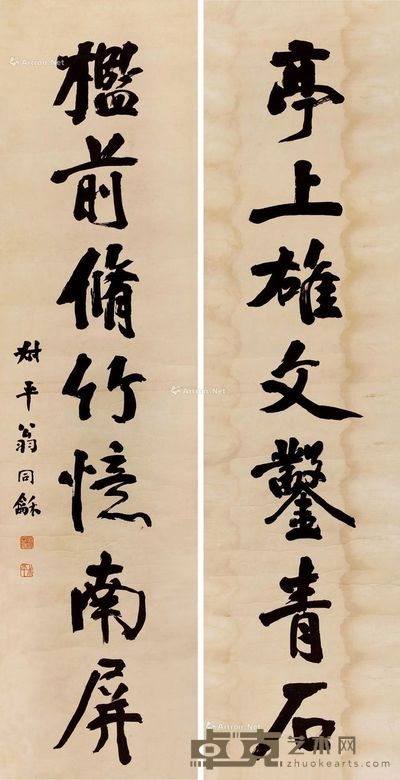 亭上雄文鑿青石
檻前脩竹憶南屏
叔平翁同龢
Artron.Net
Artron.Net
Artron.Net
Artron.Net
卓克艺术网
zhuokearts.com